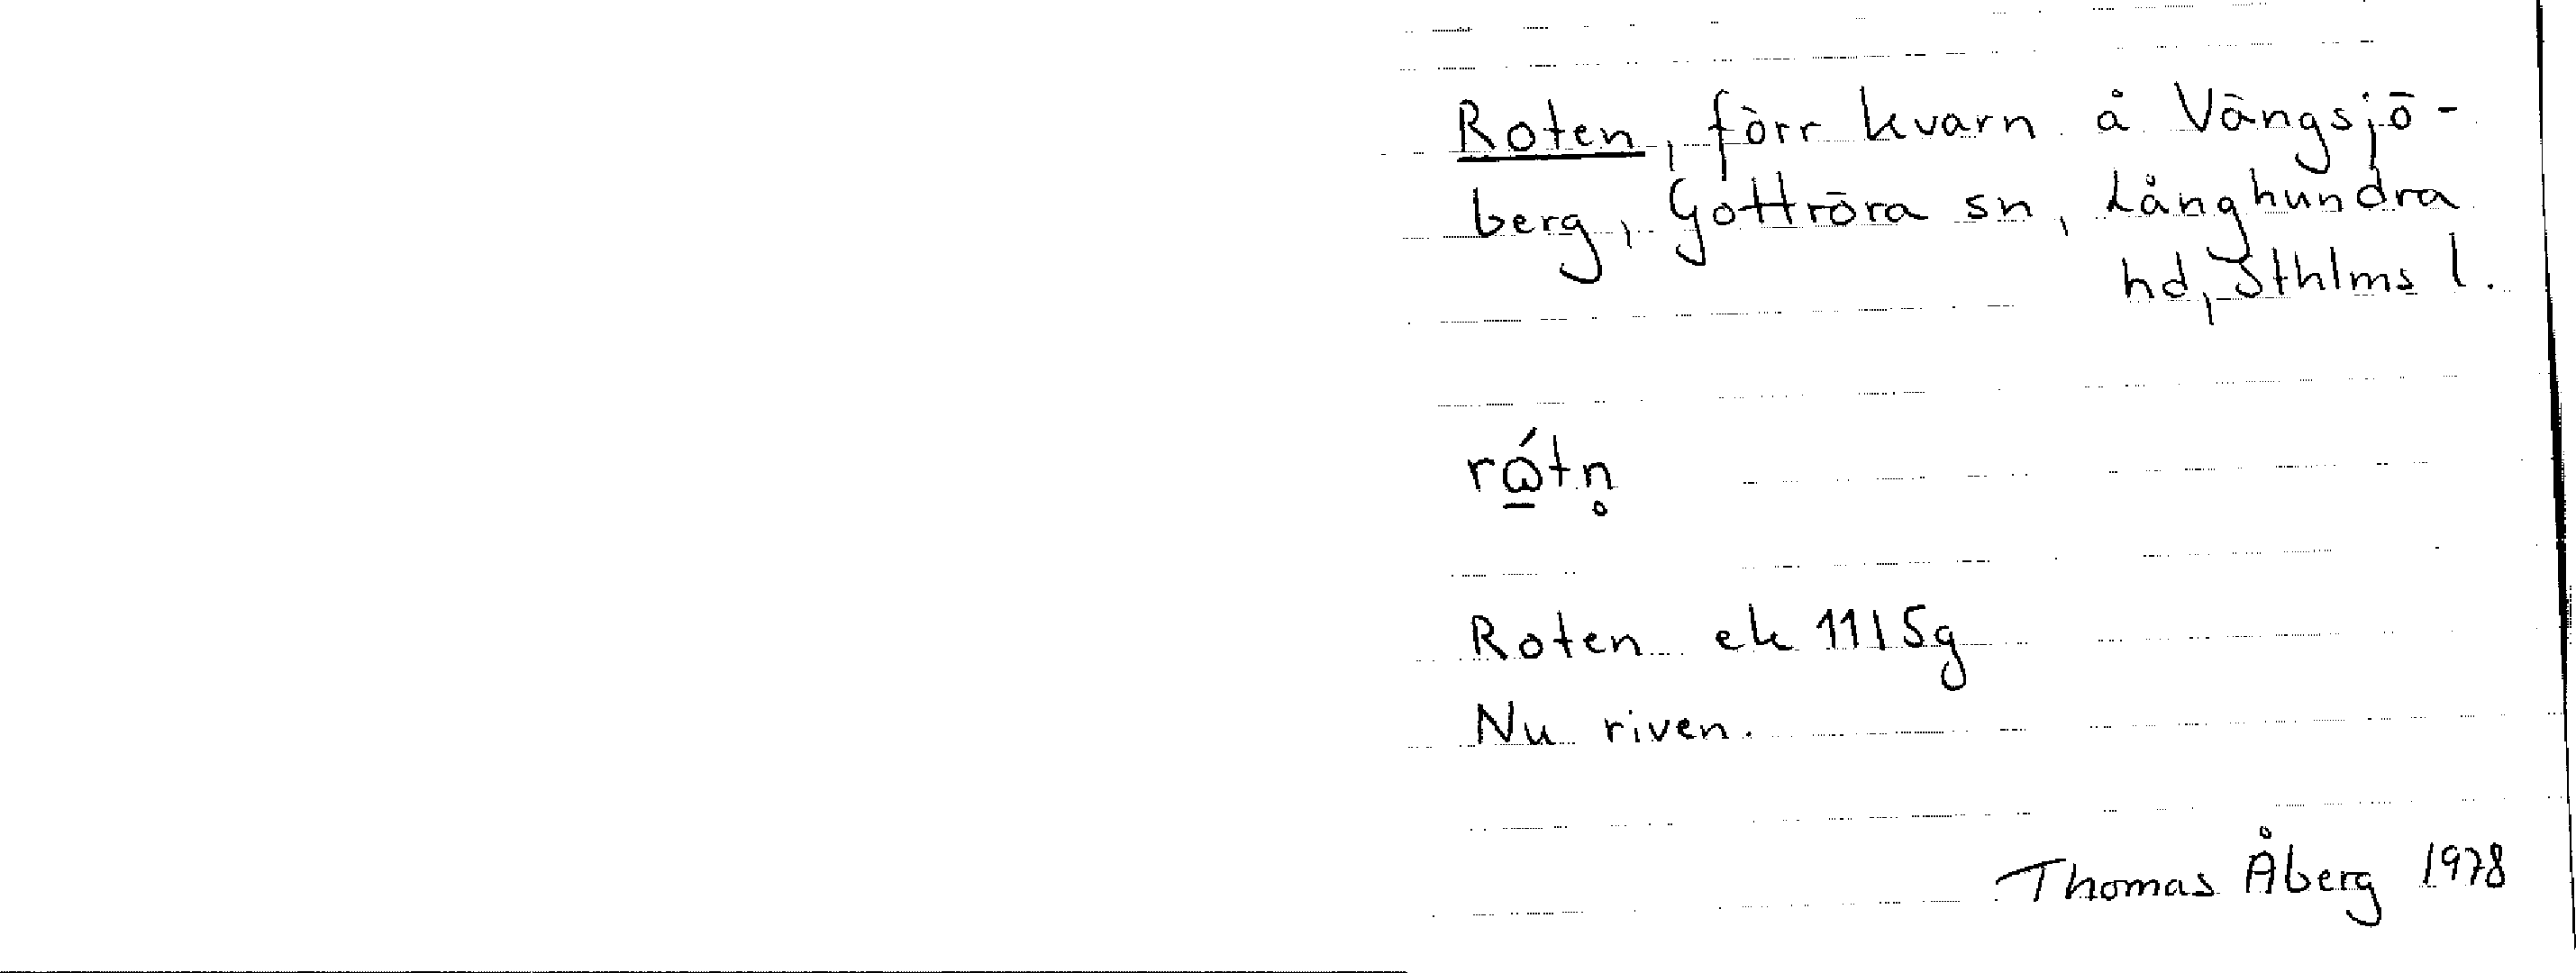 Roten, förr kvarn å Vängsjö-
berg, Gottröra sn, Långhundra
hd, Sthlms l.
rώ̲tn̥
Roten ek 11I5g
Nu riven.
Thomas Åberg 1978